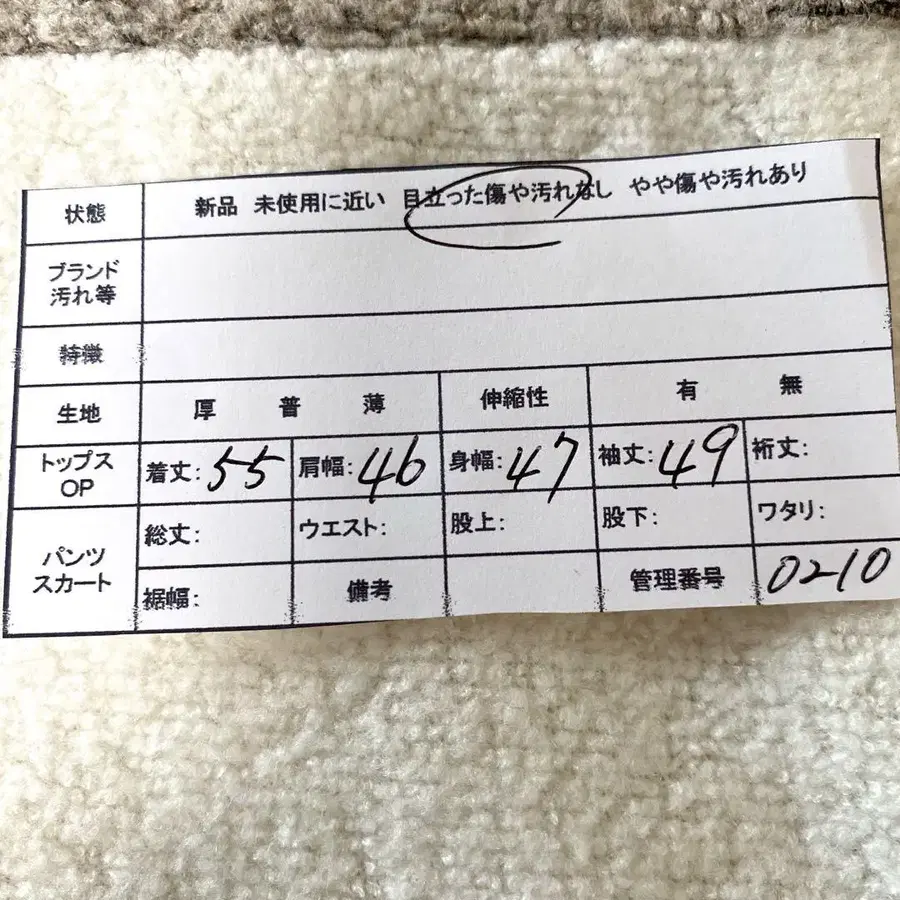 状態 新品 未使用に近い 目立った傷や汚れなし やや傷や汚れあり
ブランド
汚れ等
特徴
生地 厚 普 薄 伸縮性 有 無
トップス
OP
着丈:55 肩幅:46 身幅:47 袖丈:49 裄丈:
パンツ
スカート
総丈: ウエスト: 股上: 股下: ワタリ:
裾幅: 備考 管理番号 0210